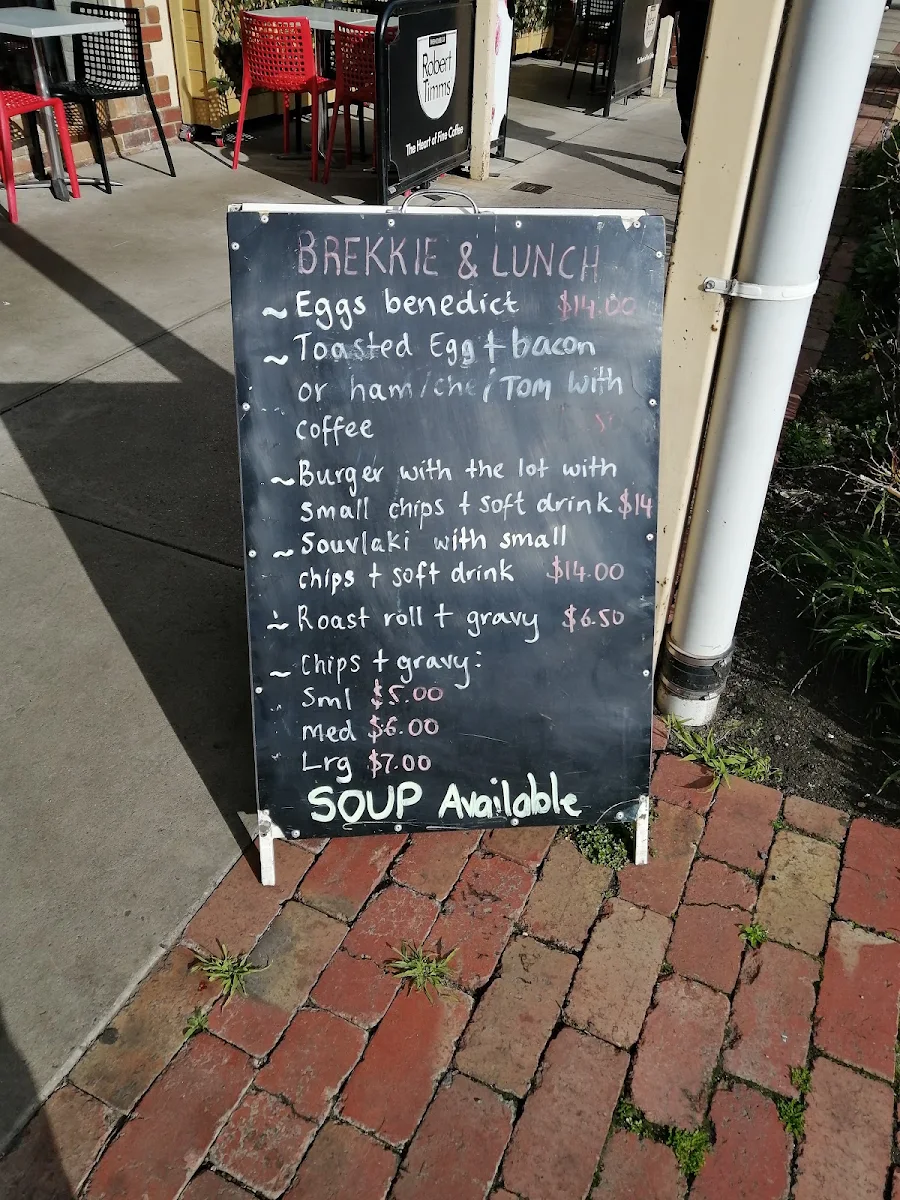 Robert
Timms
The Heart of Fine Coffee
BREKKIE & LUNCH
~ Eggs benedict $14.00
~ Toasted Egg + bacon
or ham/che/TOM with
coffee
~ Burger with the lot with
small chips + soft drink $14
~ Souvlaki with small
chips + soft drink $14.00
~ Roast roll + gravy $6.50
~ Chips + gravy:
Sml $5.00
med $6.00
Lrg $7.00
SOUP Available